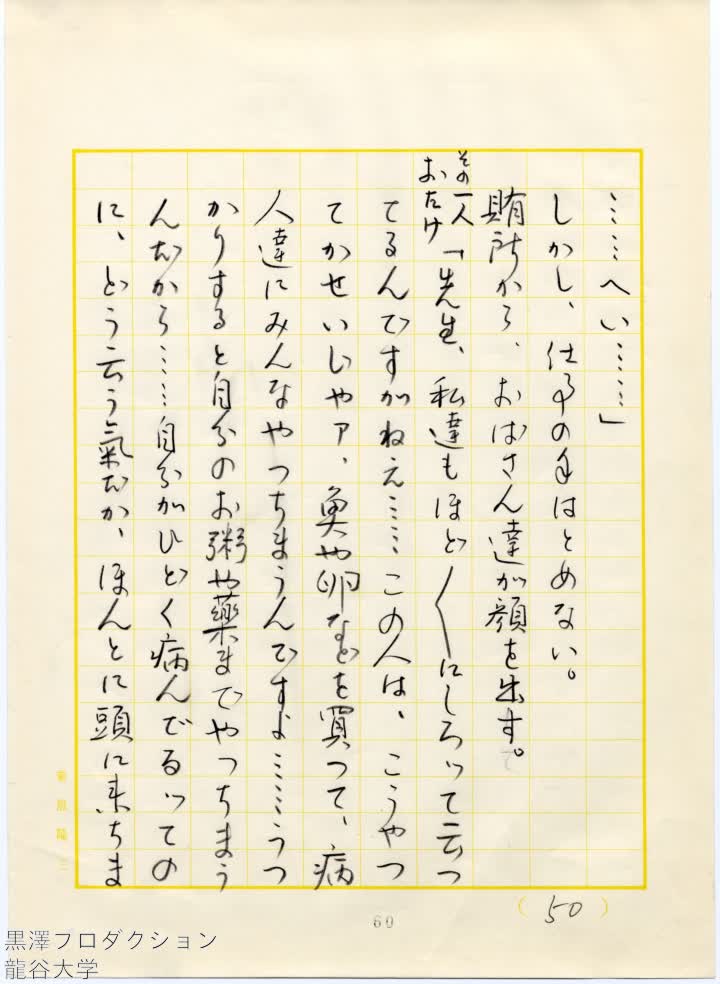 ……へい……」
しかし、仕事の手はとめない。
賄所から、おばさん達が顔を出す。
その一人
おたけ「先生、私達もほど〱にしろッて云つ
てるんですがねえ……この人は、こうやつ
てかせいじやァ、魚や卵などを買つて、病
人達にみんなやつちまうんですよ……うつ
かりすると自分のお粥や薬までやつちまう
んだから……自分がひどく病んでるッての
に、どう云う氣だか、ほんとに頭に来ちま
(50)
60
黒澤プロダクション
龍谷大学